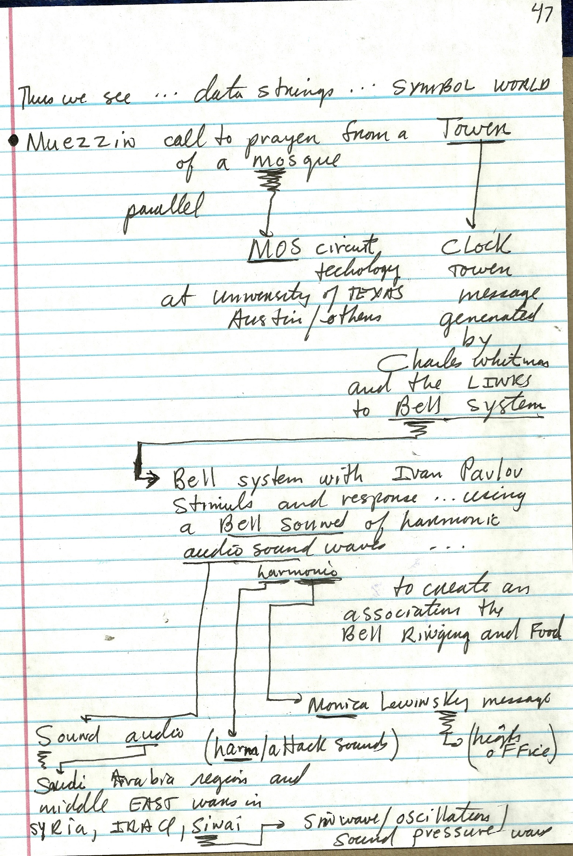 47
Thus we see ... data strings ... SYMBOL WORLD
• Muezzin call to prayer from a Tower
of a mosque
parallel
MOS circuit
techology
at university of TEXAS
Austin/others
Clock
Tower
message
generated
by
Charles Whitman
and the LINKS
to Bell system
Bell system with Ivan Pavlov
Stimuls and response ... using
a Bell sound of harmonic
audio sound waves ...
harmonic
to create an
association the
Bell Ringing and Food
Monica Lewinsky message
Sound audio
(harm/attack sounds)
(heights
OFFice)
Saudi Arabia region and
middle EAST wars in
Syria, IRAQ, Siwai
sinwave/oscillators/
Sound pressure wave